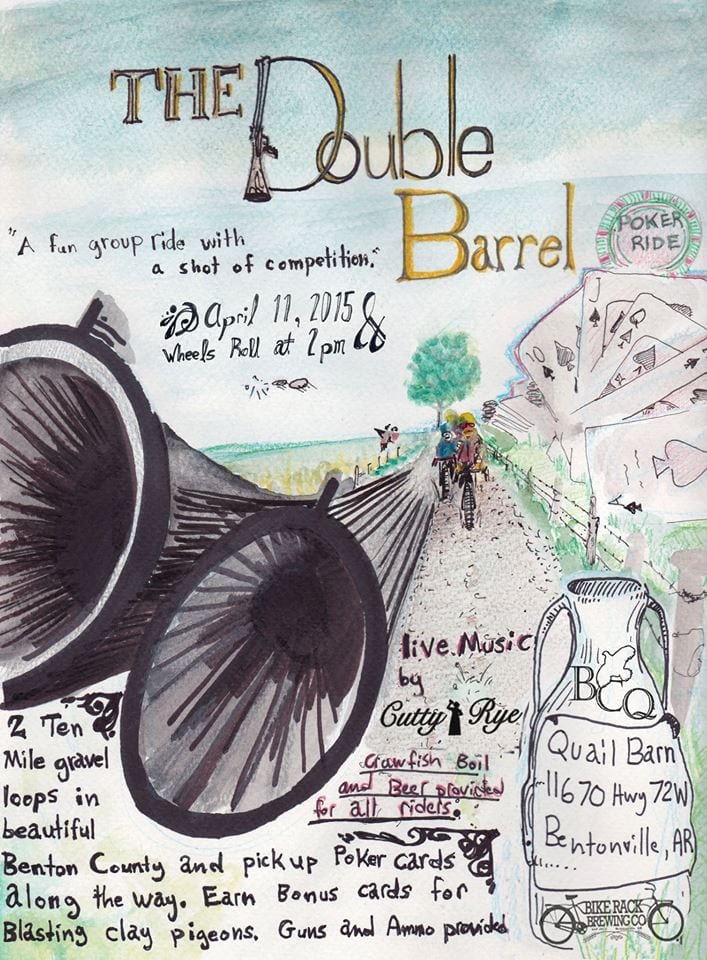 THE Double
Barrel
"A fun group ride with
a shot of competition."
POKER
RIDE
April 11, 2015 &
Wheels Roll at 2pm
J
10
live Music
by
Cutty Rye
Crawfish Boil
and Beer provided
for all riders.
2 Ten
Mile gravel
loops in
beautiful
Benton County and pick up Poker cards
along the way. Earn Bonus cards for
Blasting clay pigeons. Guns and Ammo provided
BCQ
Quail Barn
11670 Hwy 72W
Bentonville, AR
BIKE RACK
BREWING CO